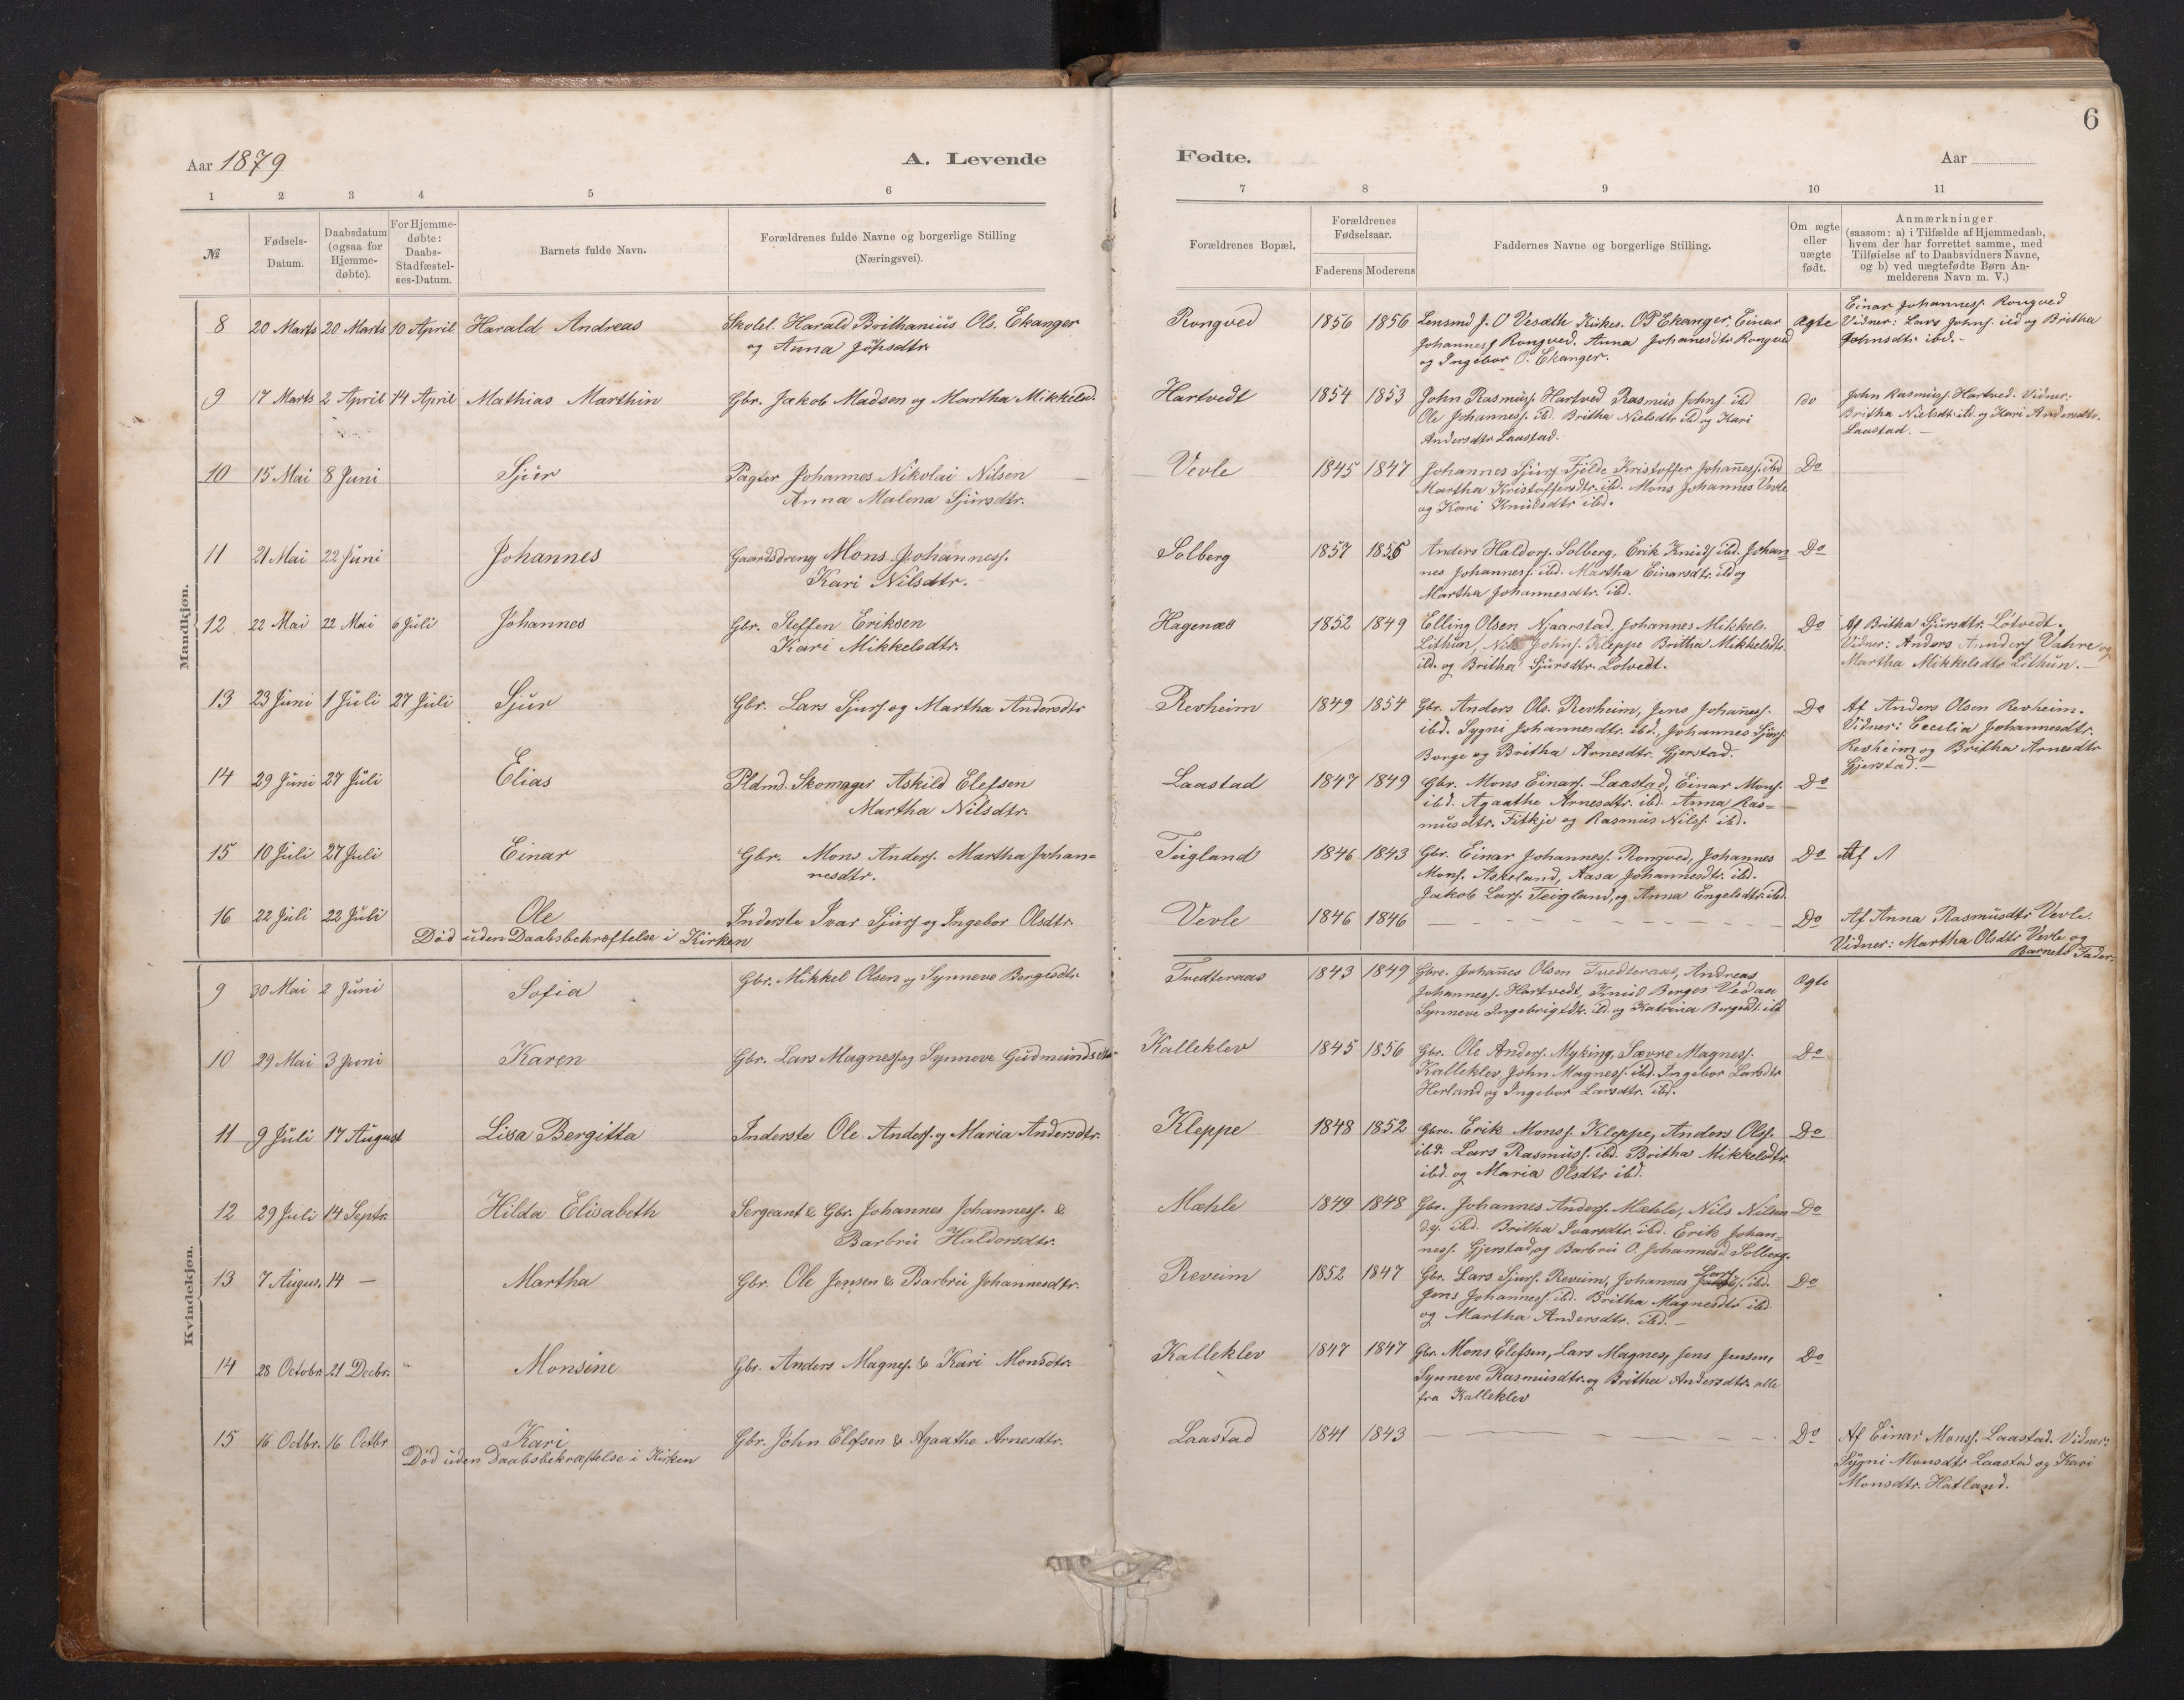 6
Aar 1879
A. Levende
Fødte.
Aar
1 2 3 4 5 6 7 8 9 10 11
№
Fødsels-
Datum.
Daabsdatum
(ogsaa for
Hjemme-
døbte).
For Hjemme-
døbte:
Daabs-
Stadfæstel-
ses-Datum.
Barnets fulde Navn.
Forældrenes fulde Navne og borgerlige Stilling
(Næringsvei).
Forældrenes Bopæl.
Forældrenes
Fødselsaar.
Faderens Moderens
Faddernes Navne og borgerlige Stilling.
Om ægte
eller
uægte
født.
Anmærkninger
(saasom: a) i Tilfælde af Hjemmedaab,
hvem der har forrettet samme, med
Tilføielse af to Daabsvidners Navne,
og b) ved uægtefødte Børn An-
melderens Navn m. V.)
Mandkjøn.
8 20 Marts 20 Marts 10 April Harald Andreas
Skolel. Harald Brithanius Ols. Ekanger
og Anna
Rongved 1856 1856
Lensmd J. O Vesæth Kirkes. OP Ekanger, Einar
Johanness Rongved. Anna Johanesdtr Rongved
og Ingebor O. Ekanger.
Ægte
Einar Johanness. Rongved
Vidner: Lars Johns. ibd og Britha
Johnsdtr ibd.-
9 17 Marts 2 April 14 April Mathias Marthin
Gbr. Jakob Madsen og Martha Mikkelsd.
Hartvedt 1854 1853
John Rasmuss. Hartved Rasmus Johns ibd
Ole Johanness. ibd. Britha Nielsdtr ibd og Kari
Andersdtr Laastad.
Do
John Rasmuss Hartved. Vidner:
Britha Nielsdtr ibd. og Kari Andersdtr.
Laastad. -
10 15 Mai 8 Juni Sjur
Pagter Johannes Nikolai Nilsen
Anna Malena Sjursdtr.
Vevle 1845 1847
Johannes Sjurs. Fjelde Kristoffer Johaness. ibd
Martha Kristoffersdtr. ibd. Mons Johannes Vevle
og Kari Knudsdtr ibd.
Do
11 21 Mai 22 Juni Johannes
Gaardsdreng Mons Johanness.
Kari Nilsdtr.
Solberg 1857 1855
Anders Haldors. Solberg, Erik Knuds ibd. Johan-
nes Johanness. ibd. Martha Einarsdtr. ibd og
Martha Johannesdtr. ibd.
Do
12 22 Mai 22 Mai 6 Juli Johannes
Gbr. Steffen Eriksen
Kari Mikkelsdtr.
Hagenæs 1852 1849
Elling Olsen Naarstad, Johannes Mikkels.
Lithun, Nils Johns. Kleppe Britha Mikkelsdtr.
ibd. og Britha Sjursdtr. Lotvedt.
Do
Af Britha Sjursdtr. Lotvedt.
Vidner: Anders Anders Vahre og
Martha Mikkelsdtr Lithun. -
13 23 Juni 1 Juli 27 Juli Sjur
Gbr. Lars Sjurs. og Martha Andersdtr
Revheim 1849 1854
Gbr. Anders Ols. Revheim, Jens Johaness.
ibd. Sygni Johannesdtr. ibd., Johannes Sjurs.
Borge og Britha Arnesdtr. Gjerstad.
Do
Af Anders Olsen Revheim.
Vidner: Cecilia Johannesdtr.
Revheim og Britha Arnesdtr
Gjerstad.-
14 29 Juni 27 Juli Elias
Pldmd. Skomager Askild Elefsen
Martha Nilsdtr.
Laastad 1847 1849
Gbr. Mons Einars. Laastad, Einar Mons.
ibd. Agaathe Arnesdtr. ibd. Anna Ras=
musdtr. Fitkje og Rasmus Nilss. ibd.
Do
15 10 Juli 27 Juli Einar
Gbr. Mons Anders. Martha Johan=
nesdtr.
Teigland 1846 1843
Gbr. Einar Johanness. Rongved, Johannes
Mons. Askeland, Aasa Johannesdtr. ibd.
Jakob Lars. Teigland, og Anna Engelsdtr. ibd.
Do
Af
16 22 Juli 22 Juli Ole
Død uden Daabsbekræftelse i Kirken
Inderste Ivar Sjurs og Ingebor Olsdtr.
Vevle 1846 1846
Do
Af Anna Rasmusdtr Vevle.
Vidner: Martha Olsdtr Vevle og
Barnets Fader.
Kvindekjøn.
9 30 Mai 2 Juni Sofia
Gbr. Mikkel Olsen og Synneve Bergesdtr
Tvedteraas 1843 1849
Gbre. Johanes Olsen Tvedteraas, Andreas
Johanness. Hartvedt, Knud Berges Vedaa
Synneve Ingebrigtdtr. ibd. og Katrina Bergesdt. ibd
Ægte
10 29 Mai 3 Juni Karen
Gbr. Lars Magness. og Synneve Gudmundsdtr
Kalleklev 1845 1856
Gbr. Ole Anders. Myking, Sævre Magness.
Kalleklev John Magness. ibd. Ingebor Larsdtr
Herland og Ingebor Larsdtr. ibd.
Do
11 9 Juli 17 August Lisa Bergitta
Inderste Ole Anders. og Maria Andersdtr.
Kleppe 1848 1852
Gbre. Erik Monss. Kleppe, Anders Olss.
ibd. Lars Rasmuss. ibd. Britha Mikkelsdtr.
ibd. og Maria Olsdtr ibd.
Do
12 29 Juli 14 Septr. Hilda Elisabeth
Sergeant & Gbr. Johannes Johanness. &
Barbru Haldorsdtr.
Mæhle 1849 1848
Gbr. Johannes Anders. Mæhle, Nils Nilsen
d.y. ibd. Britha Ivarsdtr. ibd. Erik Johan=
ness. Gjerstad, og Barbru O. Johannesd Solberg.
Do
13 7 Augus. 14 — Martha
Gbr. Ole Jensen & Barbru Johannesdtr.
Reveim 1852 1847
Gbr. Lars Sjurs. Reveim, Johannes Lars ibd.
Jens Johanness. ibd. Britha Magnesdtr ibd.
og Martha Andersdtr. ibd.-
Do
14 28 Octobr. 21 Decbr. " Monsine
Gbr. Anders Magnes. & Kari Monsdtr.
Kalleklev 1847 1847
Gbr. Mons Elefsen, Lars Magnes, Jens Jensen,
Synneve Rasmusdtr. og Britha Andersdtr. alle
fra Kalleklev
Do
15 16 Octbr. 16 Octbr Kari
Død uden Daabsbekræftelse i Kirken
Gbr. John Elefsen & Agaathe Arnesdtr.
Laastad 1841 1843
Do
Af Einar Monss. Laastad. Vidner:
Sygni Monsdtr Laastad og Kari
Monsdtr. Hatland.